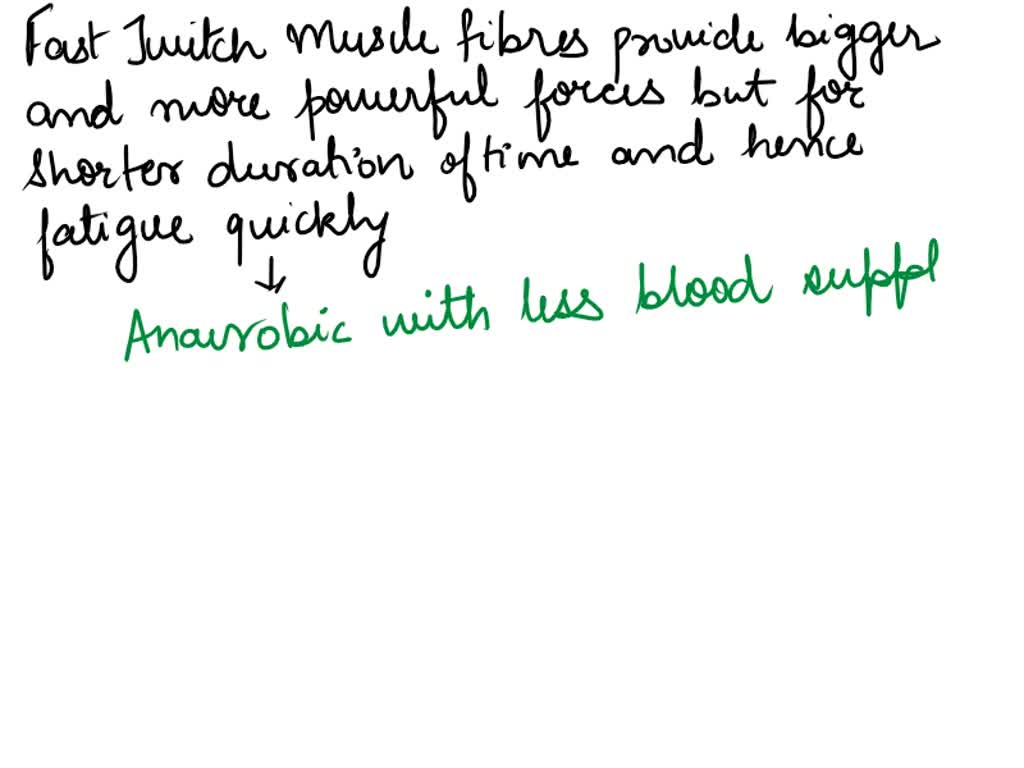 Fast Twitch Muscle fibres provide bigger
and more powerful forces but for
shorter duration of time and hence
fatigue quickly
↓
Anaerobic with less blood suppl